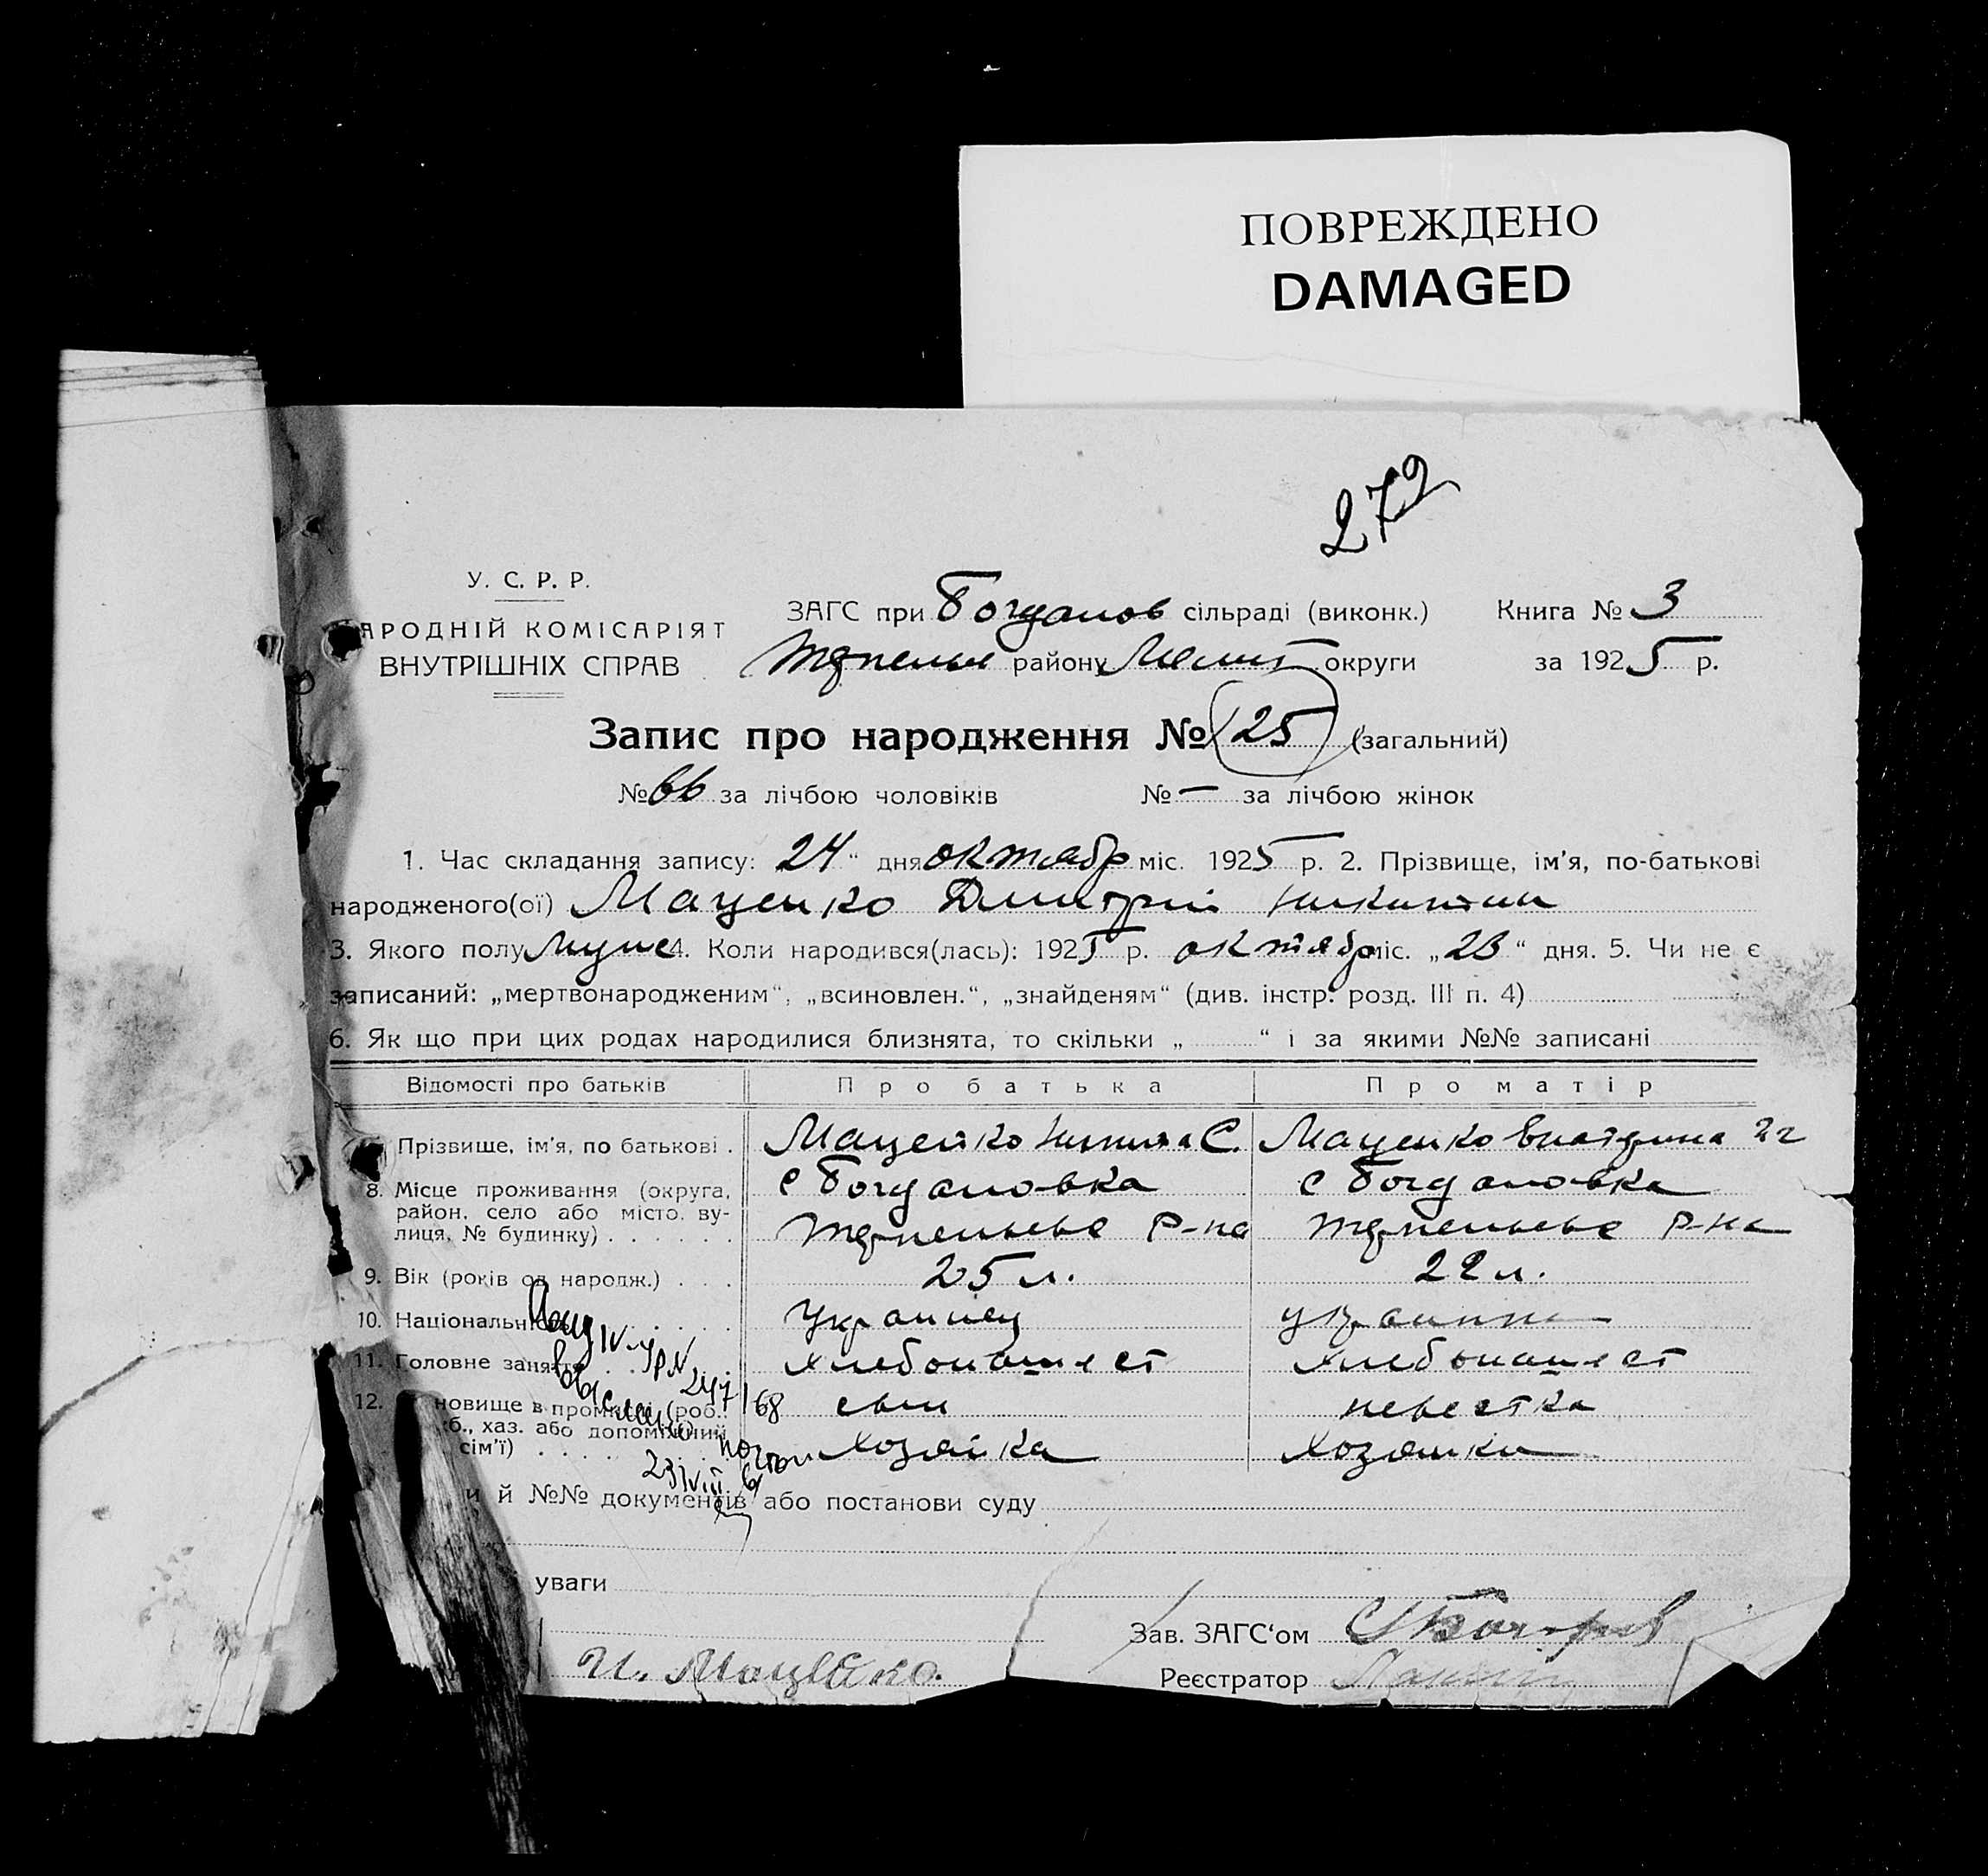 ПОВРЕЖДЕНО
DAMAGED
272
У. С. Р. Р.
АРОДНІЙ КОМІСАРІЯТ
ВНУТРІШНІХ СПРАВ
ЗАГС при Богданов сільраді (виконк.) Книга № 3
району Мелит округи за 1925 р.
Запис про народження № 125 (загальний)
№ 66 за лічбою чоловіків № — за лічбою жінок
1. Час складання запису: „24“ дня октябр міс. 1925 р. 2. Прізвище, ім'я, по-батькові
народженого(ої) Маценко Дмитрий Никитин
3. Якого полу муж 4. Коли народився(лась): 1925 р. октябр міс. „23“ дня. 5. Чи не є
записаний: „мертвонародженим“, „всиновлен.“, „знайденям“ (див. інстр. розд. III п. 4)
6. Як що при цих родах народилися близнята, то скільки „ “ і за якими №№ записані
Відомості про батьків Про батька Про матір
Прізвище, ім'я, по батькові . Маценко Никита С. Маценко
8. Місце проживання (округа, с Богдановка с Богдановка
район, село або місто, ву-
лиця, № будинку) . . . . . . р-на р-на
9. Вік (років од народж.) . . . 25 л. 22 л.
10. Національність . . . . . Украинец украинк
11. Головне заняття . . . . хлебопашест хлебопашест
12. новище в промислі (роб., сын невестка
б., хаз. або допоміжний
сім'ї) . . . . хозяйка хозяйки
247/68
и й №№ документів або постанови суду
уваги
Зав. ЗАГС'ом
И. Маценко.
Реєстратор